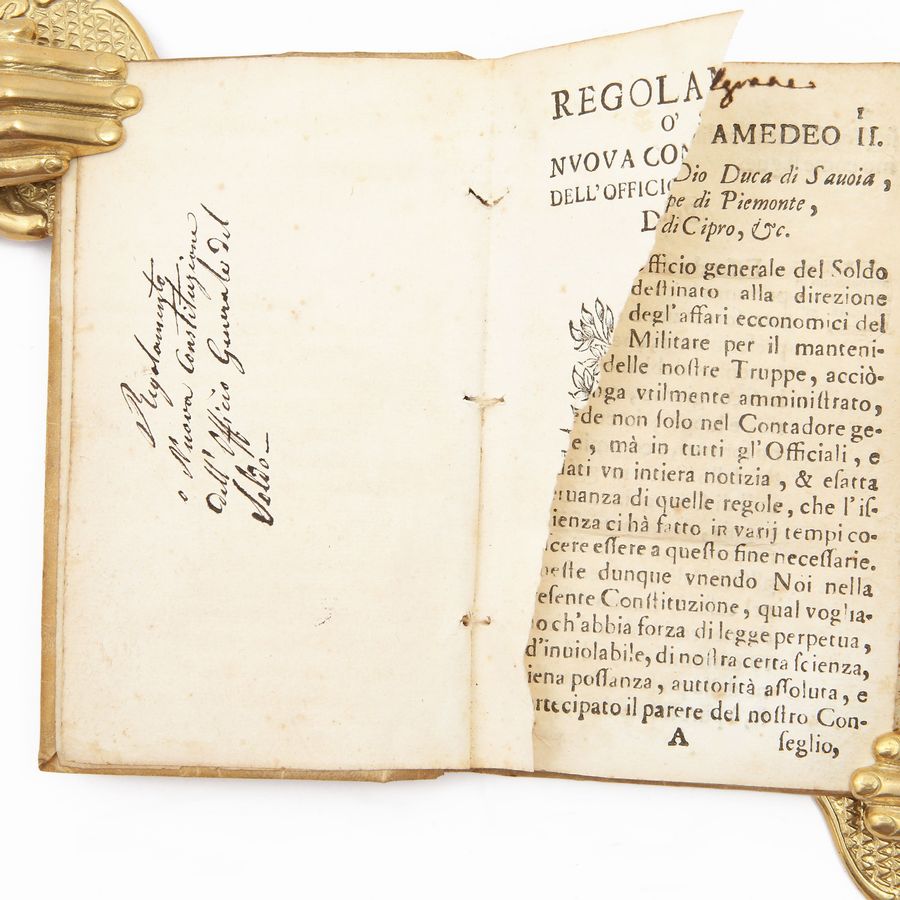 Regolamento
o Nuova Constituzione
dell' Officio Generale del
Soldo
REGOLA
O'
NVOVA CON
DELL'OFFICIO
D
I
AMEDEO II.
Dio Duca di Sauoia,
pe di Piemonte,
di Cipro, &c.
fficio generale del Soldo
destinato alla direzione
degl'affari ecconomici del
Militare per il manteni-
delle nostre Truppe, acciò-
oga vtilmente amministrato,
de non solo nel Contadore ge-
e, mà in tutti gl'Officiali, e
dati vn intiera notizia, & esatta
ruanza di quelle regole, che l'is-
ienza ci hà fatto in varij tempi co-
cere essere a questo fine necessarie.
ueste dunque vnendo Noi nella
esente Constituzione, qual voglia-
o ch'abbia forza di legge perpetua,
d'inuiolabile, di nostra certa scienza,
iena possanza, auttorità assoluta, e
rtecipato il parere del nostro Con-
A seglio,